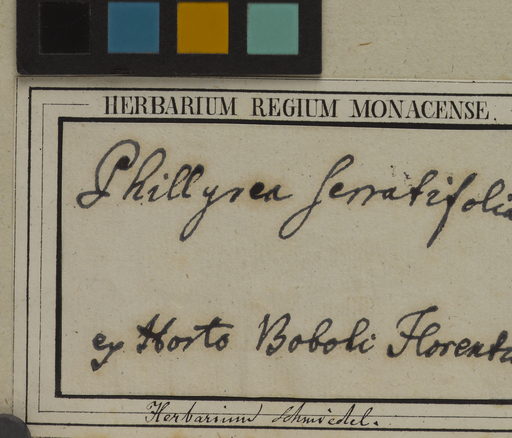 HERBARIUM REGIUM MONACENSE.
Phillyrea serratifolia
ex Horto Boboli Florent
Herbarium Schmiedel.